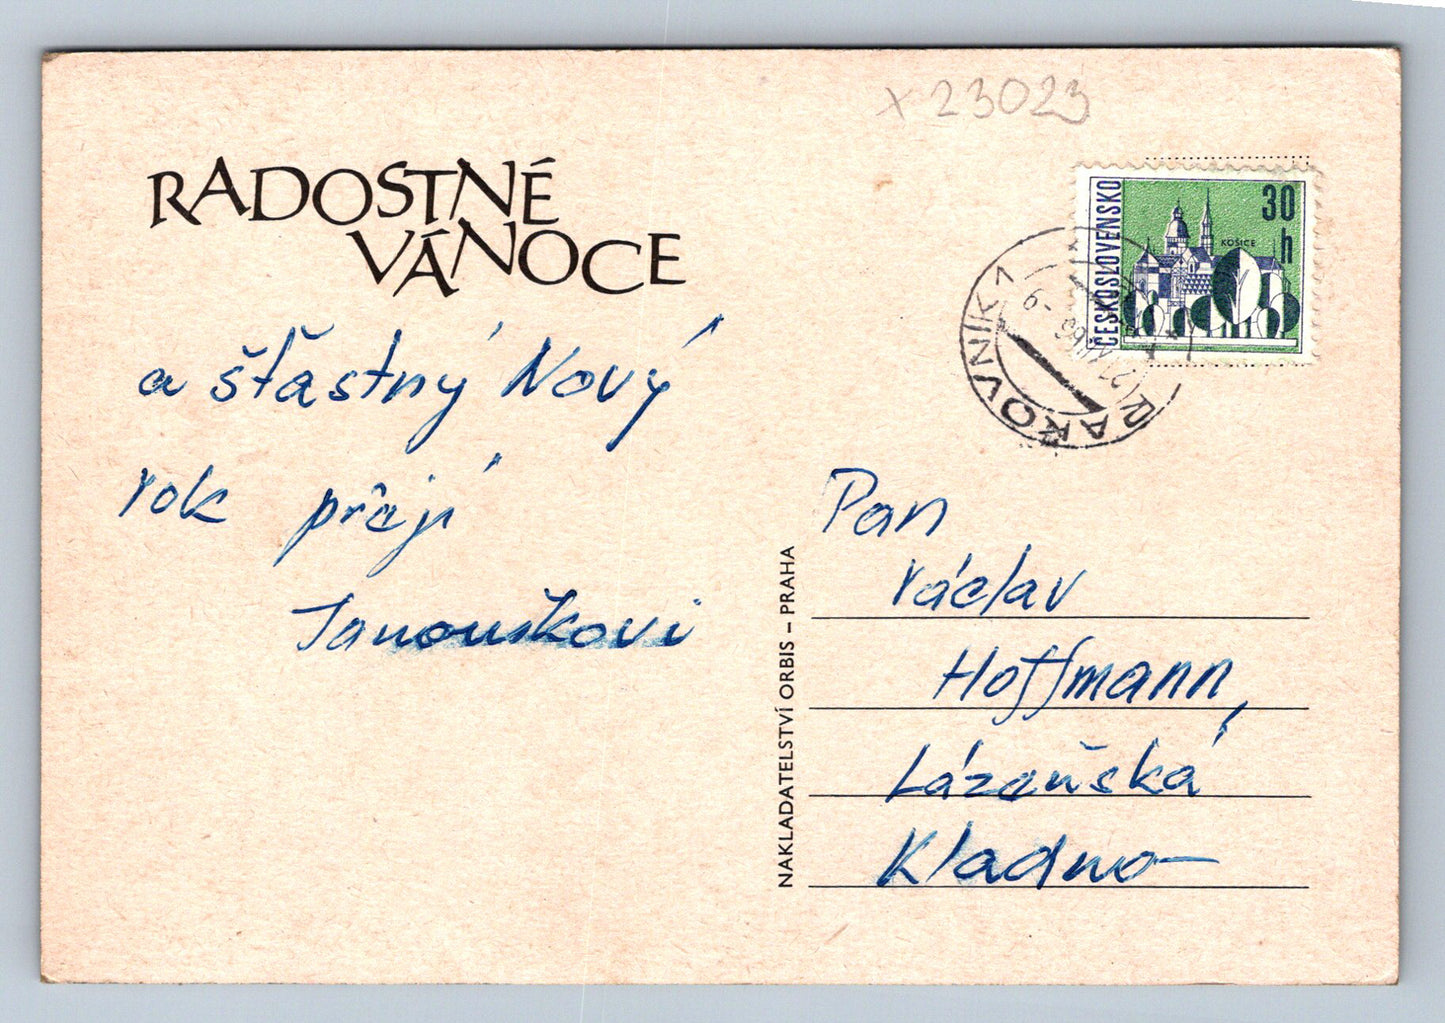 x 23023
RADOSTNÉ
VÁNOCE
a šťastný Nový
rok přejí
Janouškovi
ČESKOSLOVENSKO
30
h
KOŠICE
RAKOVNÍK 1
NAKLADATELSTVÍ ORBIS – PRAHA
Pan
Václav
Hoffmann,
Lázeňská
Kladno